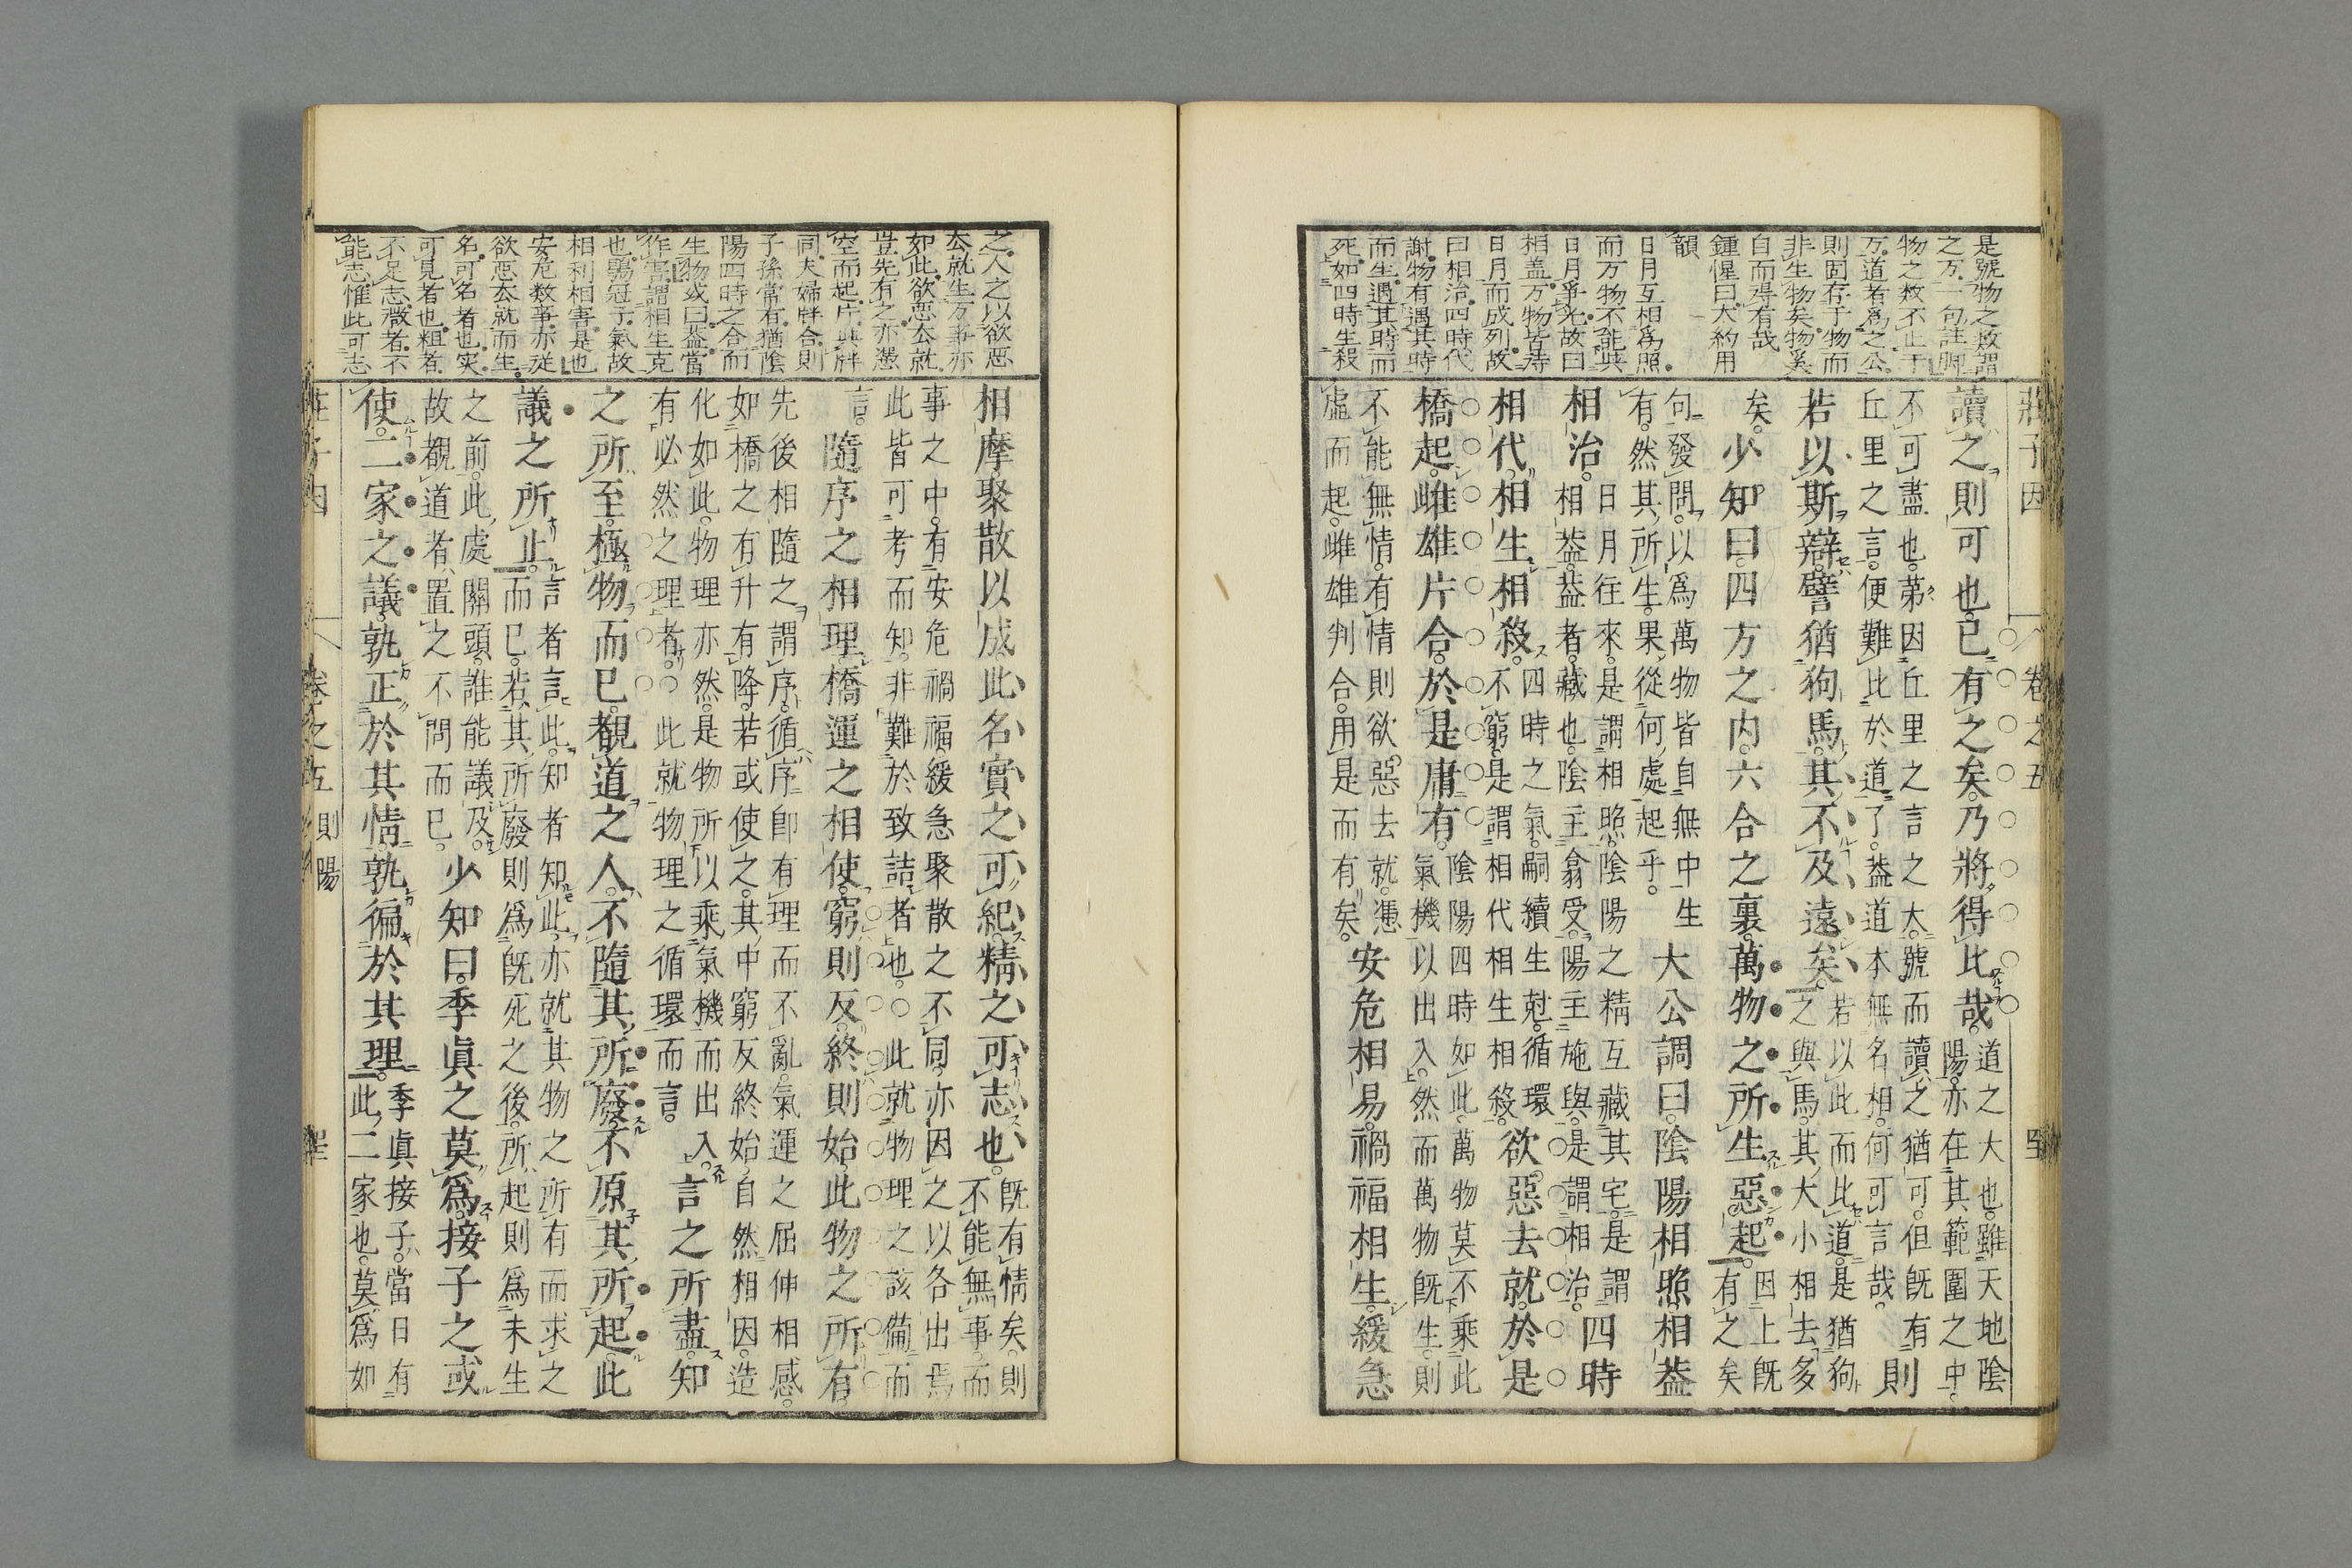 莊子因
卷之五
是號物之数謂
之万一句註脚
物之数不止于
万道者爲之公
則固存于物而
非生物矣物奚
自而得有哉
鍾惺曰大約用
韻
日月互相爲照
而万物不能與
日月爭光故曰
相盖万物皆待
日月而成列故
曰相治四時代
謝物有遇其時
而生遇其時而
死如四時生殺
讀之則可也已有之矣乃將得比哉
道之大也雖天地陰
陽亦在其範圍之中
不可盡也第因丘里之言之大號而讀之猶可但既有
丘里之言便難比於道了葢道本無名相何可言哉
則
若以斯辯譬猶狗馬其不及遠矣
若以此而比道是猶狗
之與馬其大小相去多
矣少知曰四方之内六合之裏萬物之所生惡起
因上既
有之矣
句發問以爲萬物皆自無中生
有然其所生果從何處起乎
大公調曰陰陽相照相葢
相治
日月往來是謂相照陰陽之精互藏其宅是謂
相葢葢者藏也陰主翕受陽主施與是謂相治
四時
相代相生相殺
四時之氣嗣續生尅循環
不窮是謂相代相生相殺
欲惡去就於是
橋起雌雄片合於是庸有
陰陽四時如此萬物莫不乘此
氣機以出入然而萬物既生則
不能無情有情則欲惡去就憑
虛而起雌雄判合用是而有矣
安危相易禍福相生緩急
之人之以欲惡
去就生万事亦
如此欲惡去就
豈先有之亦憑
空而起片與牉
同夫婦牉合則
子孫常有猶陰
陽四時之合而
生物或曰葢當
作害謂相生克
也鶡冠子氣故
相利相害是也
安危数事亦従
欲惡去就而生
名可名者也实
可見者也粗者
不足志微者不
能志惟此可志
相摩聚散以成此名實之可紀精之可志也
既有情矣則
不能無事而
事之中有安危禍福緩急聚散之不同亦因之以各出焉
此皆可考而知非難於致詰者也○此就物理之該備而
言
隨序之相理橋運之相使窮則反終則始此物之所有
先後相隨之謂序循序卽有理而不亂氣運之屈伸相感
如橋之有升有降若或使之其中窮反終始自然相因造
化如此物理亦然是物所以乘氣機而出入
有必然之理者○此就物理之循環而言
言之所盡知
之所至極物而已覩道之人不隨其所廢不原其所起此
議之所止
言者言此知者知此亦就其物之所有而求之
而已若其所廢則爲既死之後所起則爲未生
之前此處關頭誰能議及
故覩道者置之不問而已
少知曰季眞之莫爲接子之或
使二家之議孰正於其情孰徧於其理
季眞接子當日有
此二家也莫爲如
莊子因
卷之五
則陽